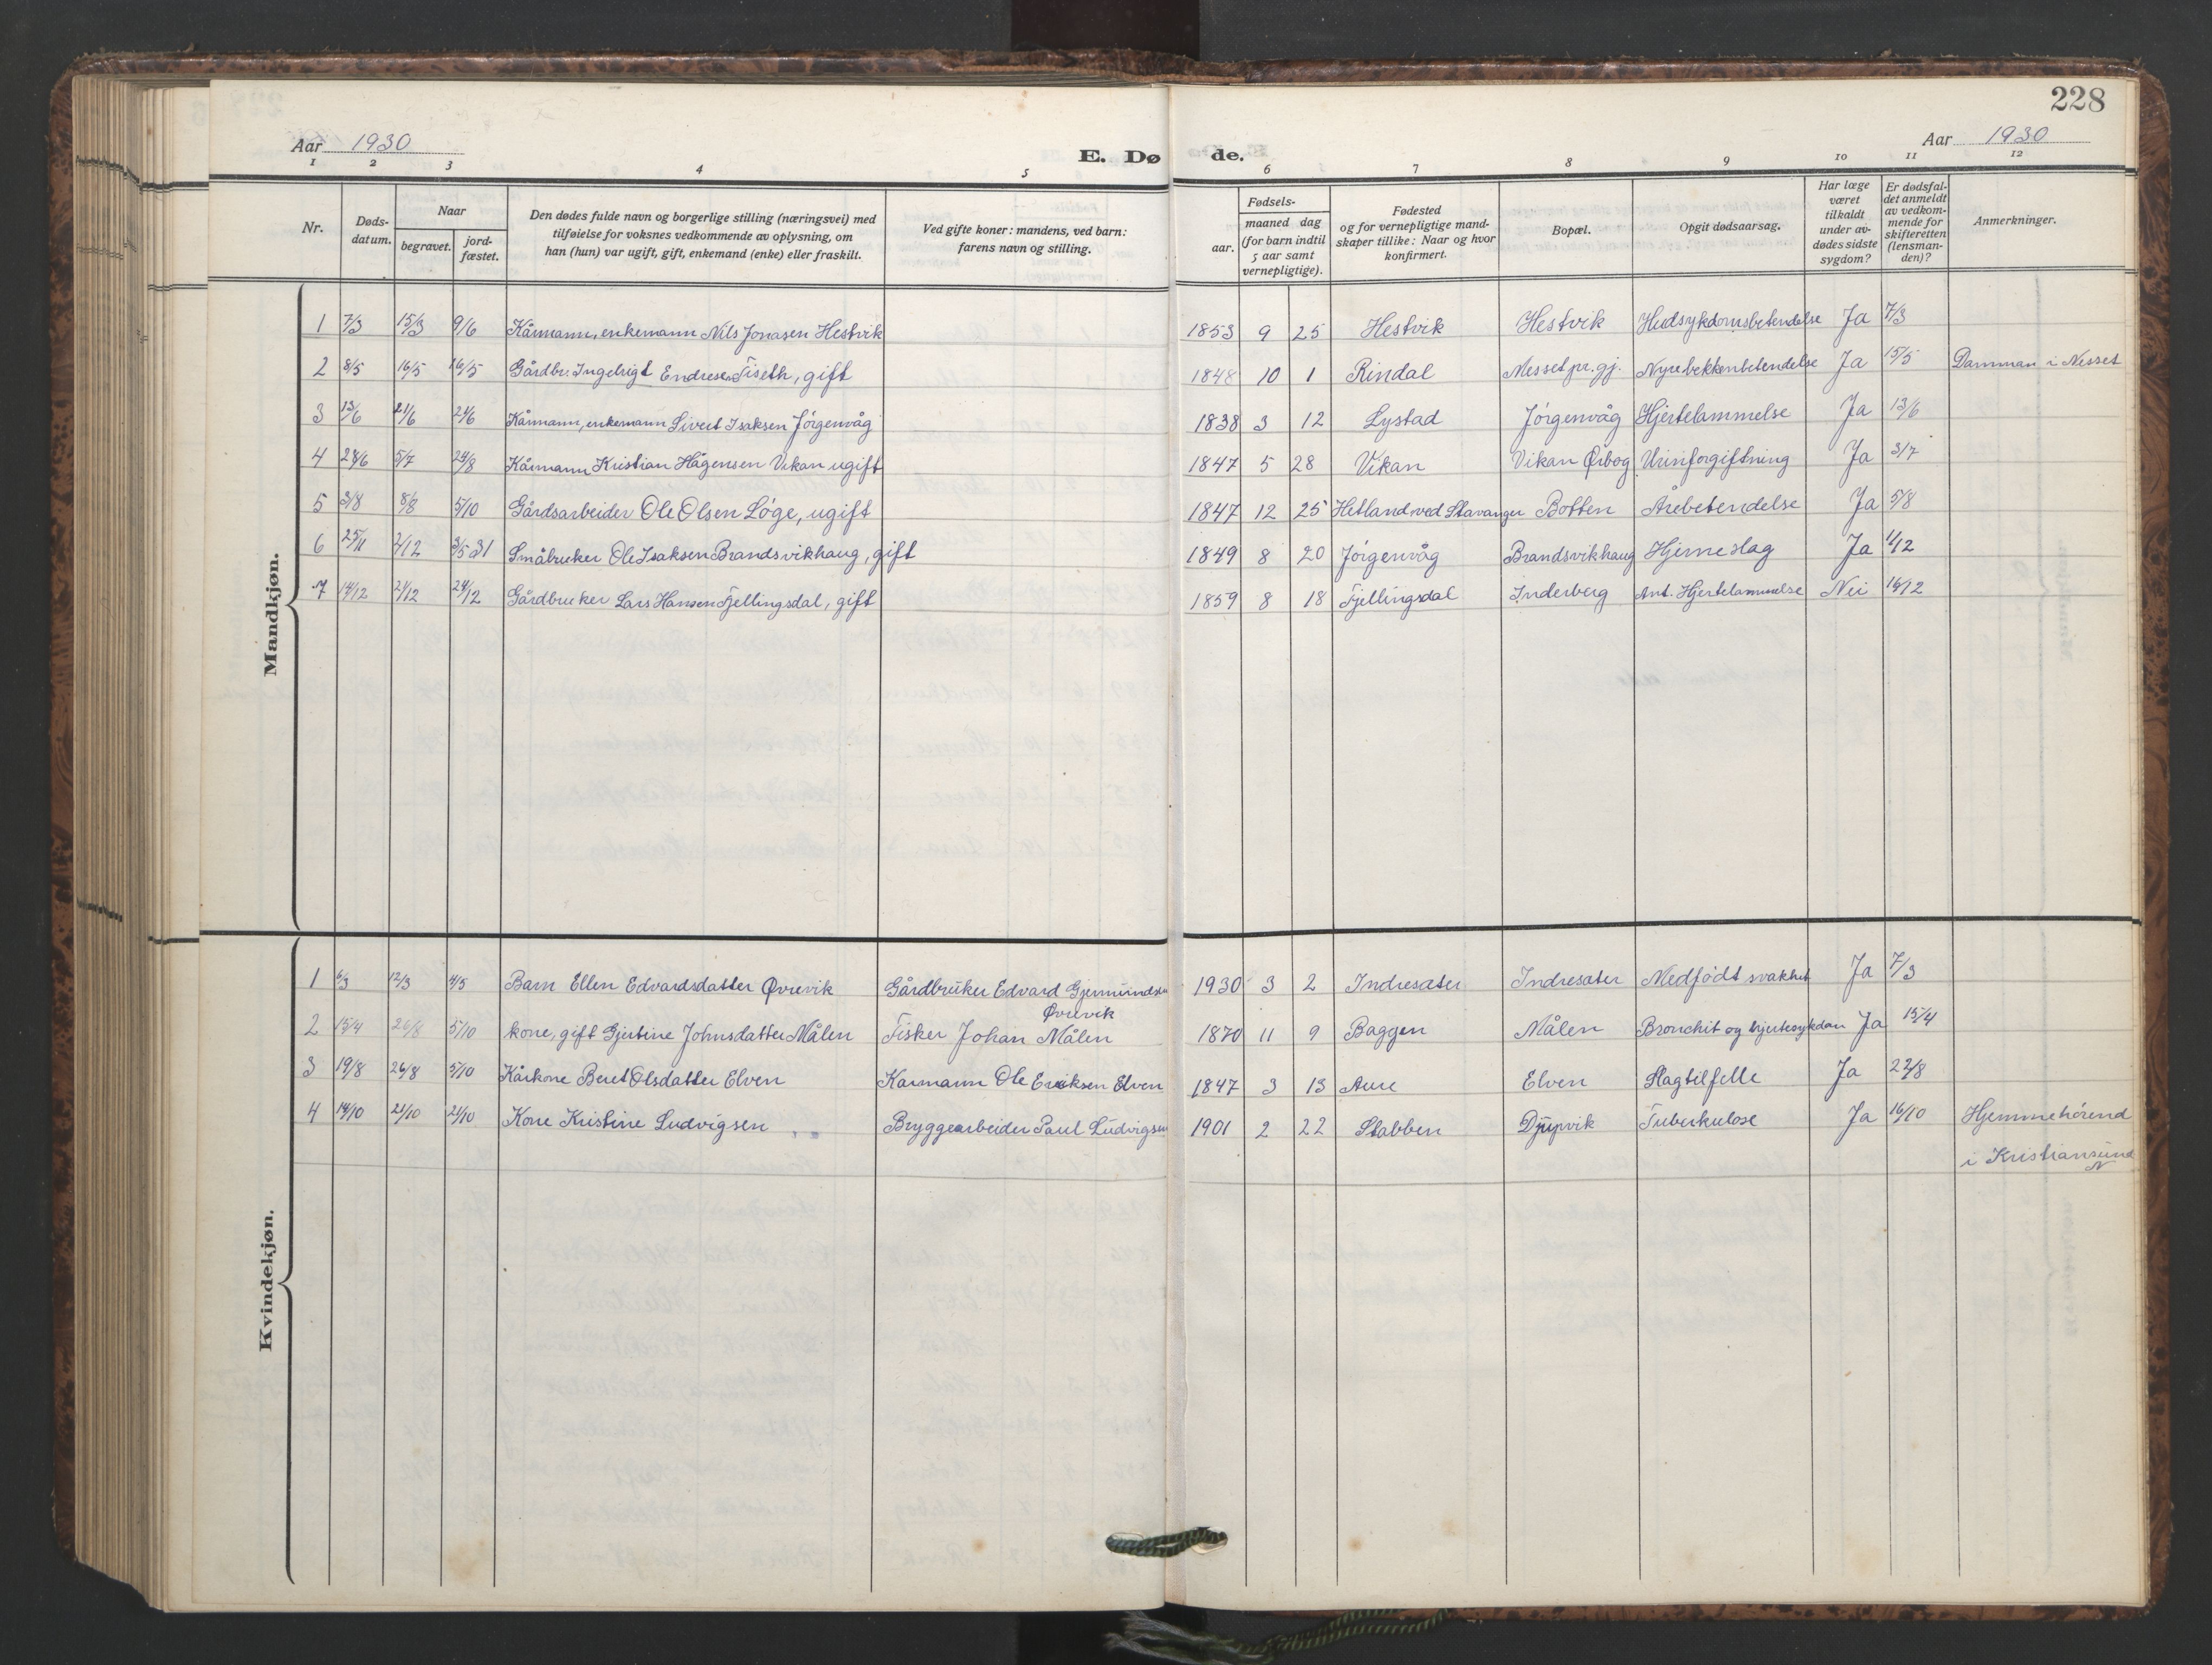 228
Aar 1930
E. Dø de.
Aar 1930
1 2 3 4 5 6 7 8 9 10 11 12
Nr.
Døds-
datum.
Naar
begravet.
jord-
fæstet.
Den dødes fulde navn og borgerlige stilling (næringsvei) med
tilføielse for voksnes vedkommende av oplysning, om
han (hun) var ugift, gift, enkemand (enke) eller fraskilt.
Ved gifte koner: mandens, ved barn:
farens navn og stilling.
Fødsels-
aar.
maaned dag
(for barn indtil
5 aar samt
vernepligtige).
Fødested
og for vernepligtige mand-
skaper tillike: Naar og hvor
konfirmert.
Bopæl.
Opgit dødsaarsag.
Har læge
været
tilkaldt
under av-
dødes sidste
sygdom?
Er dødsfal-
det anmeldt
av vedkom-
mende for
skifteretten
(lensman-
den)?
Anmerkninger.
Mandkjøn.
1 7/3 15/3 9/6 Kårmann, enkemann Nils Jonasen Hestvik 1853 9 25 Hestvik Hestvik Hudsykdomsbetendelse Ja 7/3
2 8/5 16/5 16/5 Gårdbr. Ingebrigt Endresen Tiseth, gift 1848 10 1 Rindal Nesset pr.gj. Nyrebekkenbetendelse Ja 15/5 Damman i Nesset
3 13/6 21/6 24/6 Kårmann, enkemann Sivert Isaksen Jörgenvåg 1838 3 12 Lystad Jörgenvåg Hjertelammelse Ja 13/6
4 28/6 5/7 24/8 Kårmann Kristian Hågensen Vikan ugift 1847 5 28 Vikan Vikan Ørbog Urinforgiftning Ja 3/7
5 3/8 8/8 5/10 Gårdsarbeider Ole Olsen Löge, ugift 1847 12 25 Hetland ved Stavanger Botten Årebetendelse Ja 5/8
6 25/11 2/12 3/5 31 Småbruker Ole Isaksen Brandsvikhaug, gift 1849 8 20 Jörgenvåg Brandsvikhaug Hjerneslag Ja 1/12
7 14/12 21/12 24/12 Gårdbruker Lars Hansen Fjellingsdal, gift 1859 8 18 Fjellingsdal Inderberg Ant. Hjertelammelse Nei 16/12
Kvindekjøn.
1 6/3 12/3 4/5 Barn Ellen Edvardsdatter Øvrevik Gårdbruker Edvard Gjermundsen 1930 3 2 Indresæter Indresæter Medfödt svakhet Ja 7/3
Øvrevik
2 15/4 26/8 5/10 kone, gift Gjertine Johnsdatter Målen Fisker Johan Målen 1870 11 9 Baggen Målen Bronchit og hjertesykdom Ja 15/4
3 19/8 26/8 5/10 Kårkone Beret Olsdatter Elven Karmann Ole Eriksen Elven 1847 3 13 Aure Elven Slagtilfelle Ja 22/8
4 14/10 21/10 21/10 Kone Kristine Ludvigsen Bryggearbeider Paul Ludvigsen 1901 2 22 Stabben Djupvik Tuberkulose Ja 16/10 Hjemmehörend
i Kristiansund
N